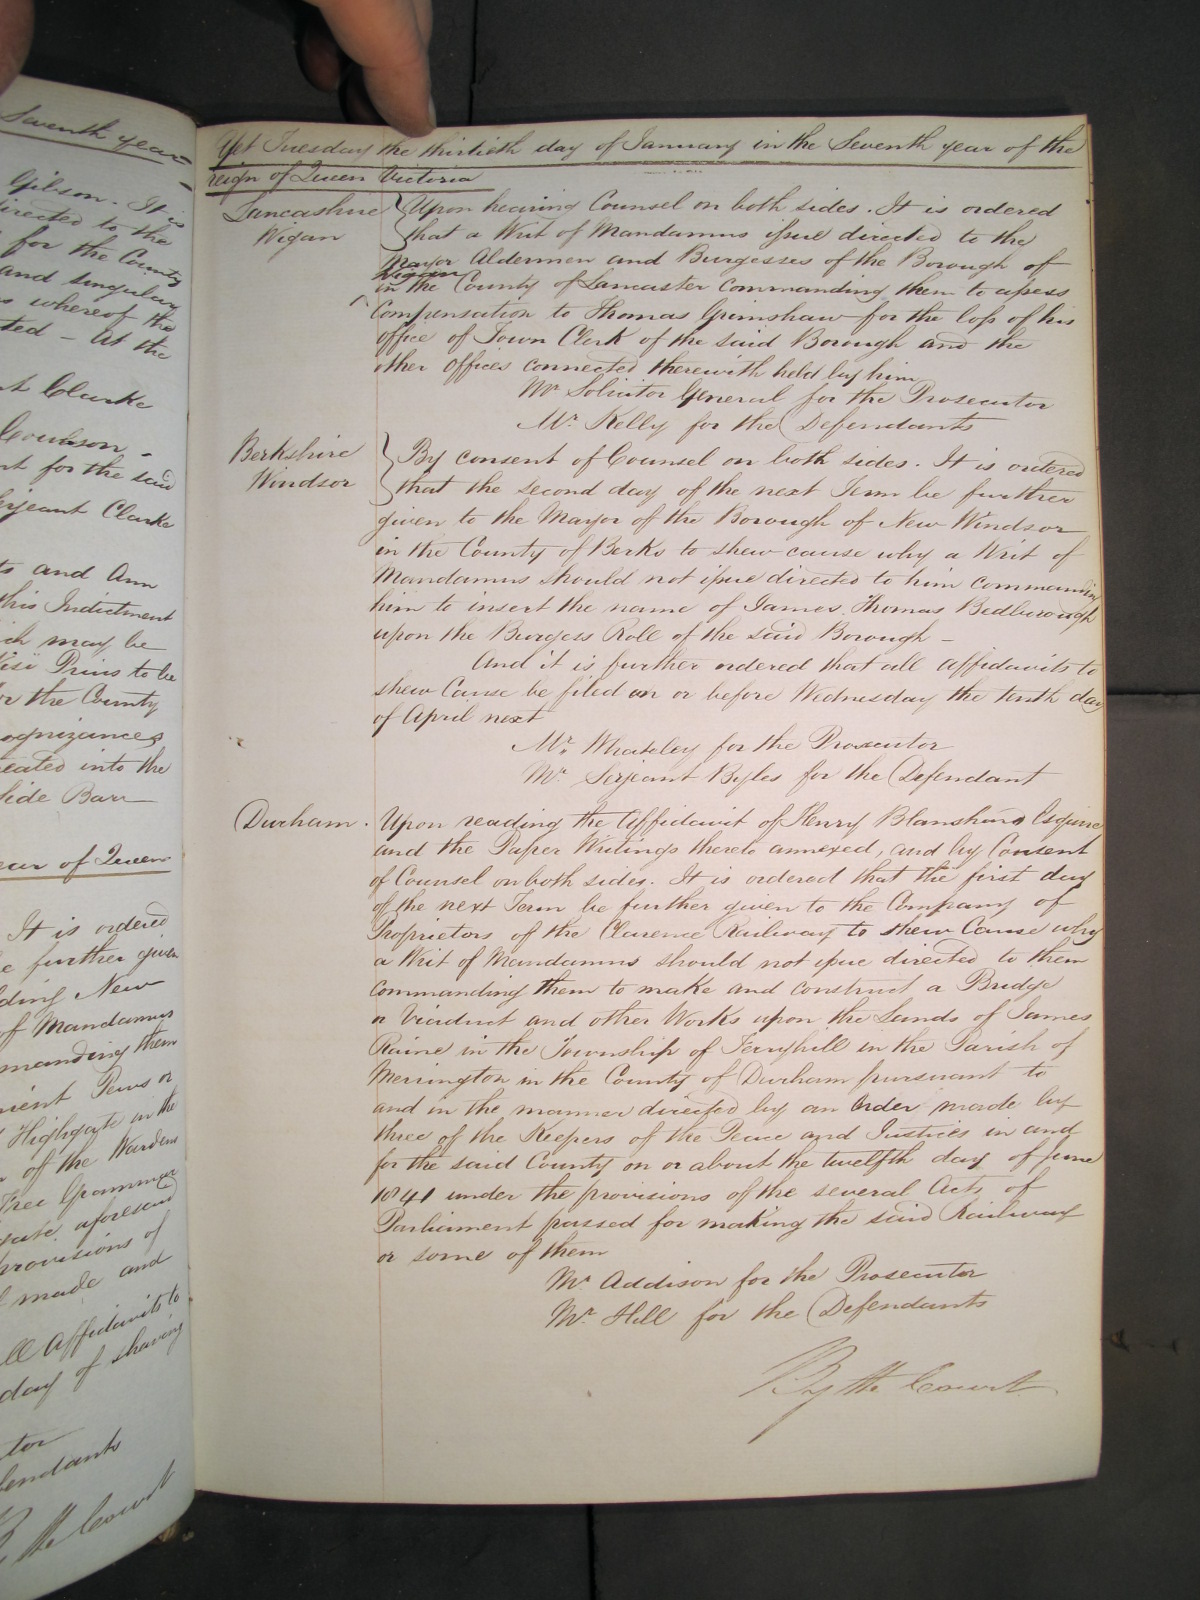 Seventh year
Gilson. It is
directed to the
for the County
and singular
whereof the
At the
Clarke
Coulson
for the said
Serjeant Clarke
and Ann
this Indictment
which may be
Nisi Prius to be
for the County
Recognizances
into the
Side Barr
year of Queen
It is ordered
further given
New
of Mandamus
them
Pews or
Highgate in the
of the Wardens
Free Grammar
aforesaid
provisions of
made and
all Affidavits to
day of shewing
Defendants
By the Court
Yet Tuesday the thirtieth day of January in the Seventh year of the
reign of Queen Victoria
Lancashire
Wigan
Upon hearing Counsel on both sides. It is ordered
that a Writ of Mandamus issue directed to the
Mayor Aldermen and Burgesses of the Borough of
Wigan
in the County of Lancaster commanding them to assess
Compensation to Thomas Grimshaw for the loss of his
office of Town Clerk of the said Borough and the
other offices connected therewith held by him
Mr. Solicitor General for the Prosecutor
Mr. Kelly for the Defendants
Berkshire
Windsor
By consent of Counsel on both sides. It is ordered
that the second day of the next Term be further
given to the Mayor of the Borough of New Windsor
in the County of Berks to shew cause why a Writ of
Mandamus should not issue directed to him commanding
him to insert the name of James Thomas Bedborough
upon the Burgess Roll of the said Borough –
And it is further ordered that all affidavits to
shew Cause be filed on or before Wednesday the tenth day
of April next
Mr. Whateley for the Prosecutor
Mr. Serjeant Byles for the Defendant
Durham.
Upon reading the Affidavit of Henry Blanshard Esquire
and the Paper Writings thereto annexed, and by Consent
of Counsel on both sides. It is ordered that the first day
of the next Term be further given to the Company of
Proprietors of the Clarence Railway to shew Cause why
a Writ of Mandamus should not issue directed to them
commanding them to make and construct a Bridge
or Viaduct and other Works upon the Lands of James
Raine in the Township of Ferryhill in the Parish of
Merrington in the County of Durham pursuant to
and in the manner directed by an Order made by
three of the Keepers of the Peace and Justices in and
for the said County on or about the twelfth day of June
1841 under the provisions of the several Acts of
Parliament passed for making the said Railway
or some of them
Mr. Addison for the Prosecutor
Mr. Hill for the Defendants
By the Court